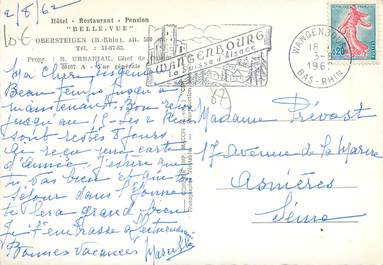 2/8/62
10€
Hôtel - Restaurant - Pension
"BELLE-VUE"
OBERSTEIGEN (B.-Rhin), alt. 500
Tél. : 31-87-63.
Propr. : R. URBANIAK, Chef de
3607 A - Vue générale
WANGENBOURG
La Suisse d'Alsace
WANGENBOURG
18
196
BAS-RHIN
0,20
Ma cher Eugénie
Beau Temps jusqu'à
maintenant. Bon
jusqu'au 15 - Les
sont restés 8 jours.
Ai reçu une carte
d'Aimée. J'espère que
Tu vas bien et que ton
séjour dans l'Yonne
te fera grand bien
Je t'embrasse affectueusement
Bonnes Vacances
Madame Prévost
17 Avenue de la Marne
Asnières
Seine